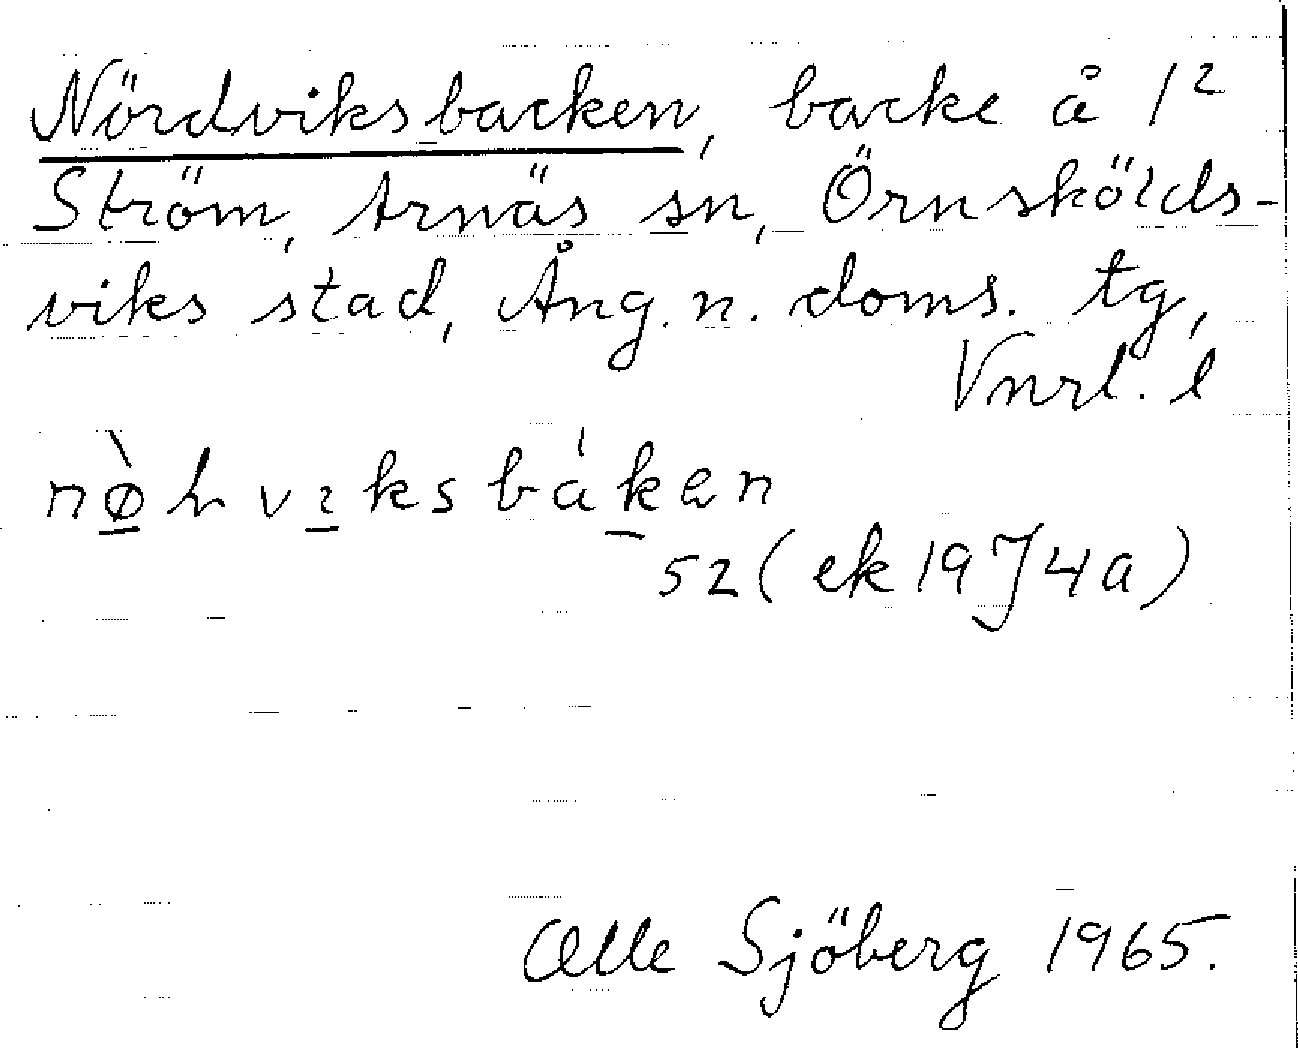 Nördviksbacken, backe å 1²
Ström, Arnäs sn, Örnskölds-
viks stad, Ång. n. doms. tg,
Vnrl. l
52 (ek 19J4a)
Olle Sjöberg 1965.